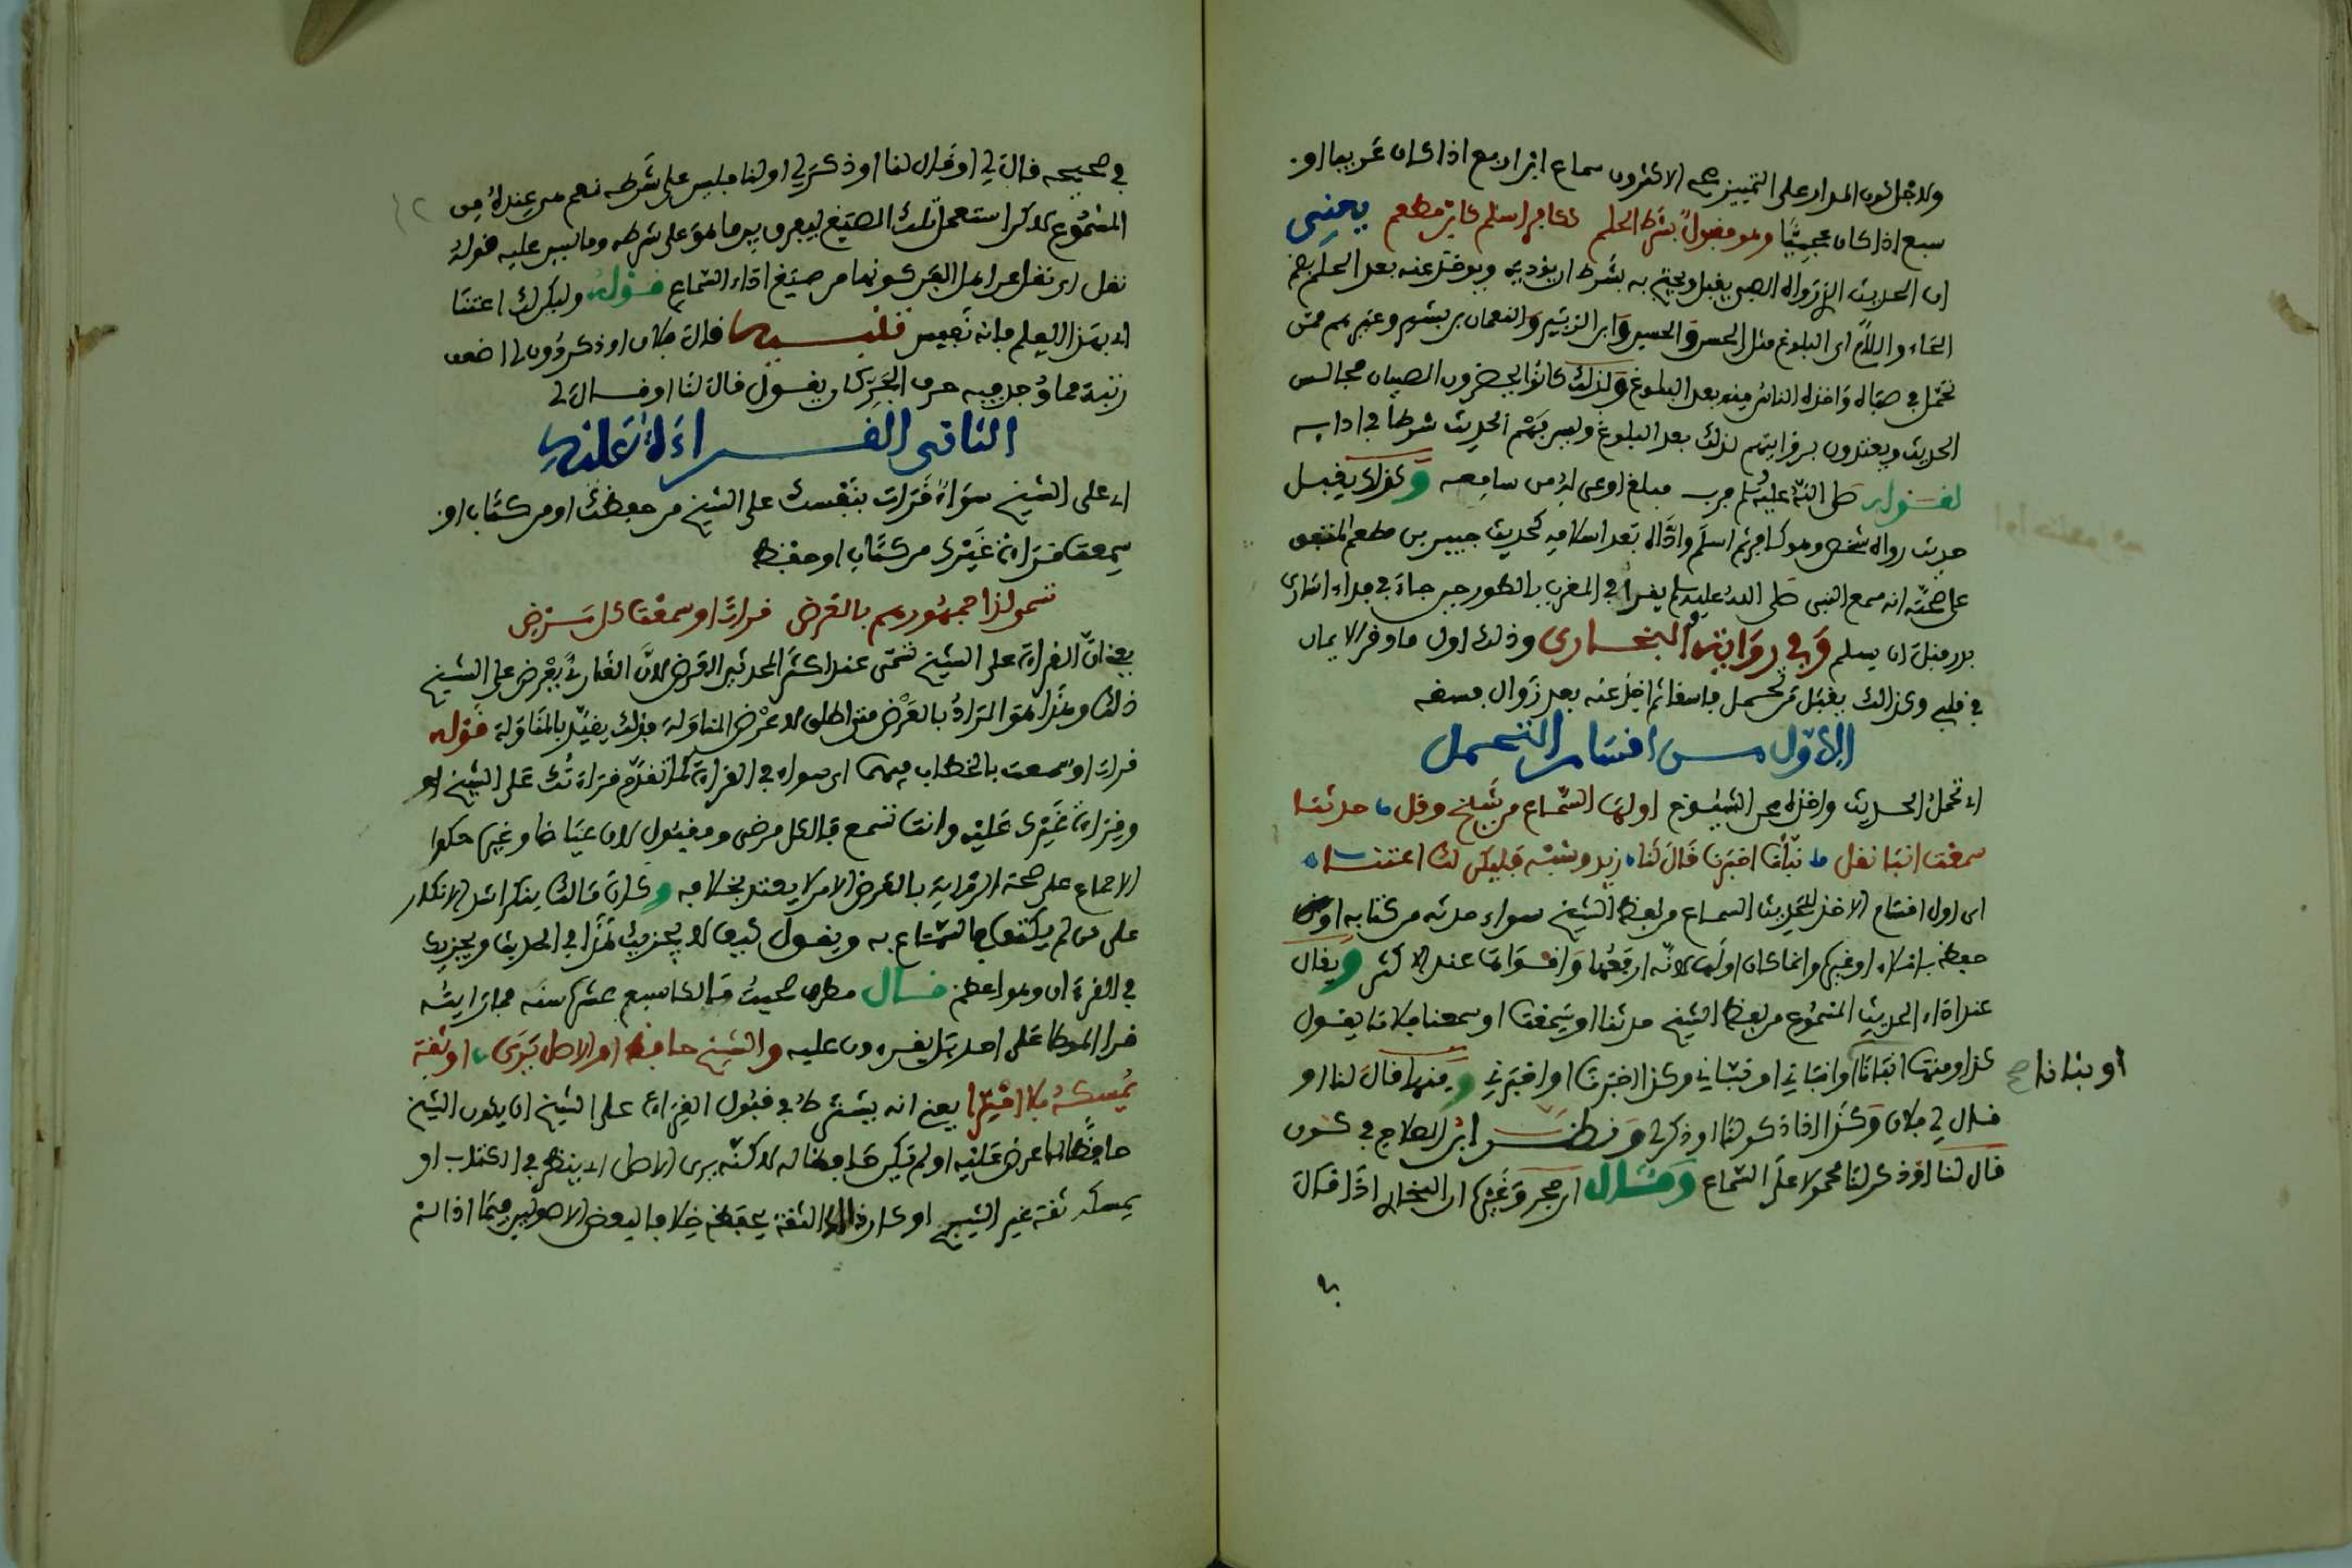 ولاجل كون المدار على التمييز صحح الاكثرون سماع ابن اربع اذا كان عربيا او
سبع اذا كان عجميا ومو مقبول بشرط الحلم ككافر اسلم كابن مطعم يعنى
ان الحديث الذى رواه الصبى يقبل ويحتج به بشرط ان يوديه ويوخذ عنه بعد الحلم بضم
الحاء واللام اى البلوغ مثل الحسن والحسين وابن الزبير والنعمان بن بشير وغيرهم ممن
تحمل في صباه واخذه الناس منه بعد البلوغ ولذلك كانوا يحضرون الصبيان مجالس
الحديث ويعتدون بروايتهم لذلك بعد البلوغ وليس فهم الحديث شرطا في ادايه
لقوله صلى الله عليه وسلم فرب مبلغ اوعى له من سامعه وكذلك يقبل
حديث رواه شخص وهو كافر ثم اسلم واداه بعد اسلامه كحديث جبير بن مطعم المتفق
على صحته انه سمع النبى صلى الله عليه وسلم يقرا في المغرب بالطور حين جاء في فداء اسارى
بدر قبل ان يسلم وفي رواية البخارى وذلك اول ما وقر الايمان
في قلبى وكذلك يقبل من تحمل فاسقا ثم اخذ عنه بعد زوال فسقه
الاول من اقسام التحمل
اى تحمل الحديث واخذه عن الشيوخ اولها السماع من شيخ وقل حدثنا
سمعت انبا نقل نبأنا اخبرنا قال لنا زيد وشبه فليكن لك اعتنا
اى اول اقسام الاخذ للحديث السماع من لفظ الشيخ سواء حدثه من كتابه او من
حفظه باملاء او غيره وانما كان اولها لانه ارفعها واقواها عند الاكثر ويقال
عند اداء الحديث المسموع من لفظ الشيخ حدثنا او سمعت او سمعنا فلانا يقول
كذا ومنها انبانا او انباني او نباني وكذا اخبرنا او اخبرني ومنها قال لنا او
او نبانا صح
قال لي فلان وكذا اذا ذكر لنا او ذكر لي ونظر ابن الصلاح في كون
قال لنا او ذكر لنا محمولا على السماع وقال ابن حجر وغيره ان البخارى اذا قال
في صحيحه قال لي او قال لنا او ذكر لي او لنا فليس على شرطه نعم هى عنده من
المسموع لاكن استعمل تلك الصيغ ليفرق بين ما هو على شرطه وما ليس عليه قوله
نقل اى نقل عن اهل الفن كونها من صيغ اداء السماع قوله وليكن لك اعتنا
اى بهذا العلم فانه نفيس تنبيه قال فلان او ذكر دون لي اضعف
رتبة مما وجد فيه حرف الجر كان يقول قال لنا او قال لي
الثاني القراءة عليه
اى على الشيخ سواء قرات بنفسك على الشيخ من حفظك او من كتاب او
سمعت قراءة غيرك من كتاب او حفظ
تسم لذا جمهورهم بالعرض قرات او سمعت كل مرض
يعنى ان القراءة على الشيخ تسمى عند اكثر المحدثين العرض لان القارئ يعرض على الشيخ
ذلك وهذا هو المراد بالعرض متى اطلق لا عرض المناولة فذلك يقيد بالمناولة قوله
قرات او سمعت بالخطاب فيهما اى سواء في القراءة كما تقدم قراءتك على الشيخ او
وقراءة غيرك عليه وانت تسمع فالكل مرض ومقبول لان عياضا وغيره حكوا
الاجماع على صحة الرواية بالعرض الا من لا يعتد بخلافه وكان مالك ينكر اشد الانكار
على من لم يكتف بالسماع به ويقول كيف لا يجزيك هذا في الحديث ويجزيك
في القرءان وهو اعظم قال مطرف صحبت مالكا سبع عشرة سنة فما رايته
قرا الموطا على احد بل يقرءون عليه والشيخ حافظ او الاصل يرى او ثقة
يمسكه بلا امترا يعنى انه يشترط في قبول القراءة على الشيخ ان يكون الشيخ
حافظا لما عرض عليه او لم يكن حافظا له لاكنه يرى الاصل اى ينظر في الكتاب او
يمسكه ثقة غير الشيخ او كان ذلك الثقة يحفظه خلافا لبعض الاصوليين فيما اذا لم